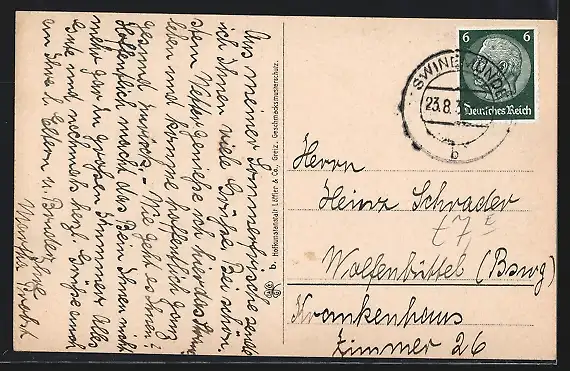 Aus meiner Sommerfrische sende
ich Ihnen viele Grüße. Bei schön-
stem Wetter genieße ich hier das Strand-
leben und komme hoffentlich ganz
gesund zurück. - Wie geht es Ihnen?
Hoffentlich macht das Bein Ihnen nicht
mehr gar zu großen Kummer. Alles
Gute und nochmals herzl. Grüße auch
an Ihre l. Eltern u. Bruder
Martha
b. Hofkunstanstalt Löffler & Co., Greiz. Geschmacksmusterschutz.
6 6
Deutsches Reich
SWINEMÜNDE
23.8.3
b
Herrn
Heinz Schrader
Wolfenbüttel (Bswg)
Krankenhaus
Zimmer 26